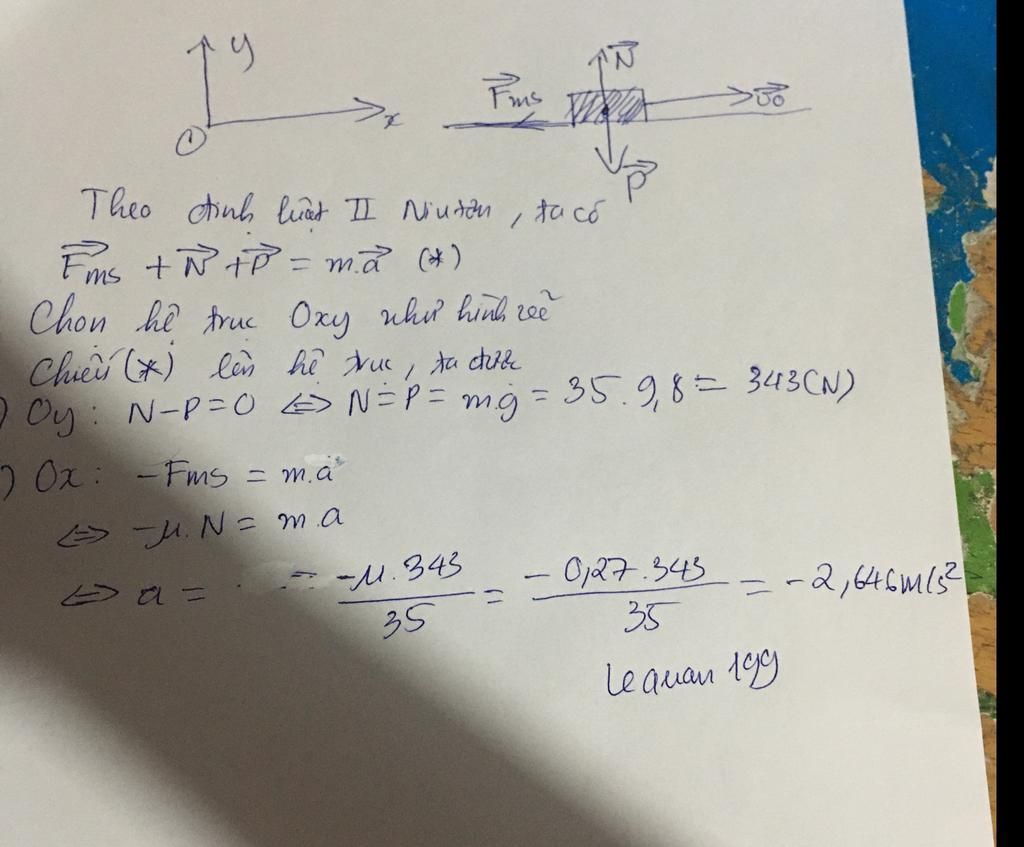 y
x
O
Fms
N
vo
P
Theo định luật II Niutơn, ta có
Fms + N + P = m.a (*)
Chọn hệ trục Oxy như hình vẽ
Chiếu (*) lên hệ trục, ta được
) Oy: N-P=0 ⇔ N=P= mg = 35.9,8 = 343(N)
) Ox: -Fms = m.a
⇔ -μ.N = m.a
⇔ a = = -μ.343/35 = -0,27.343/35 = -2,646m/s²
lequan 199